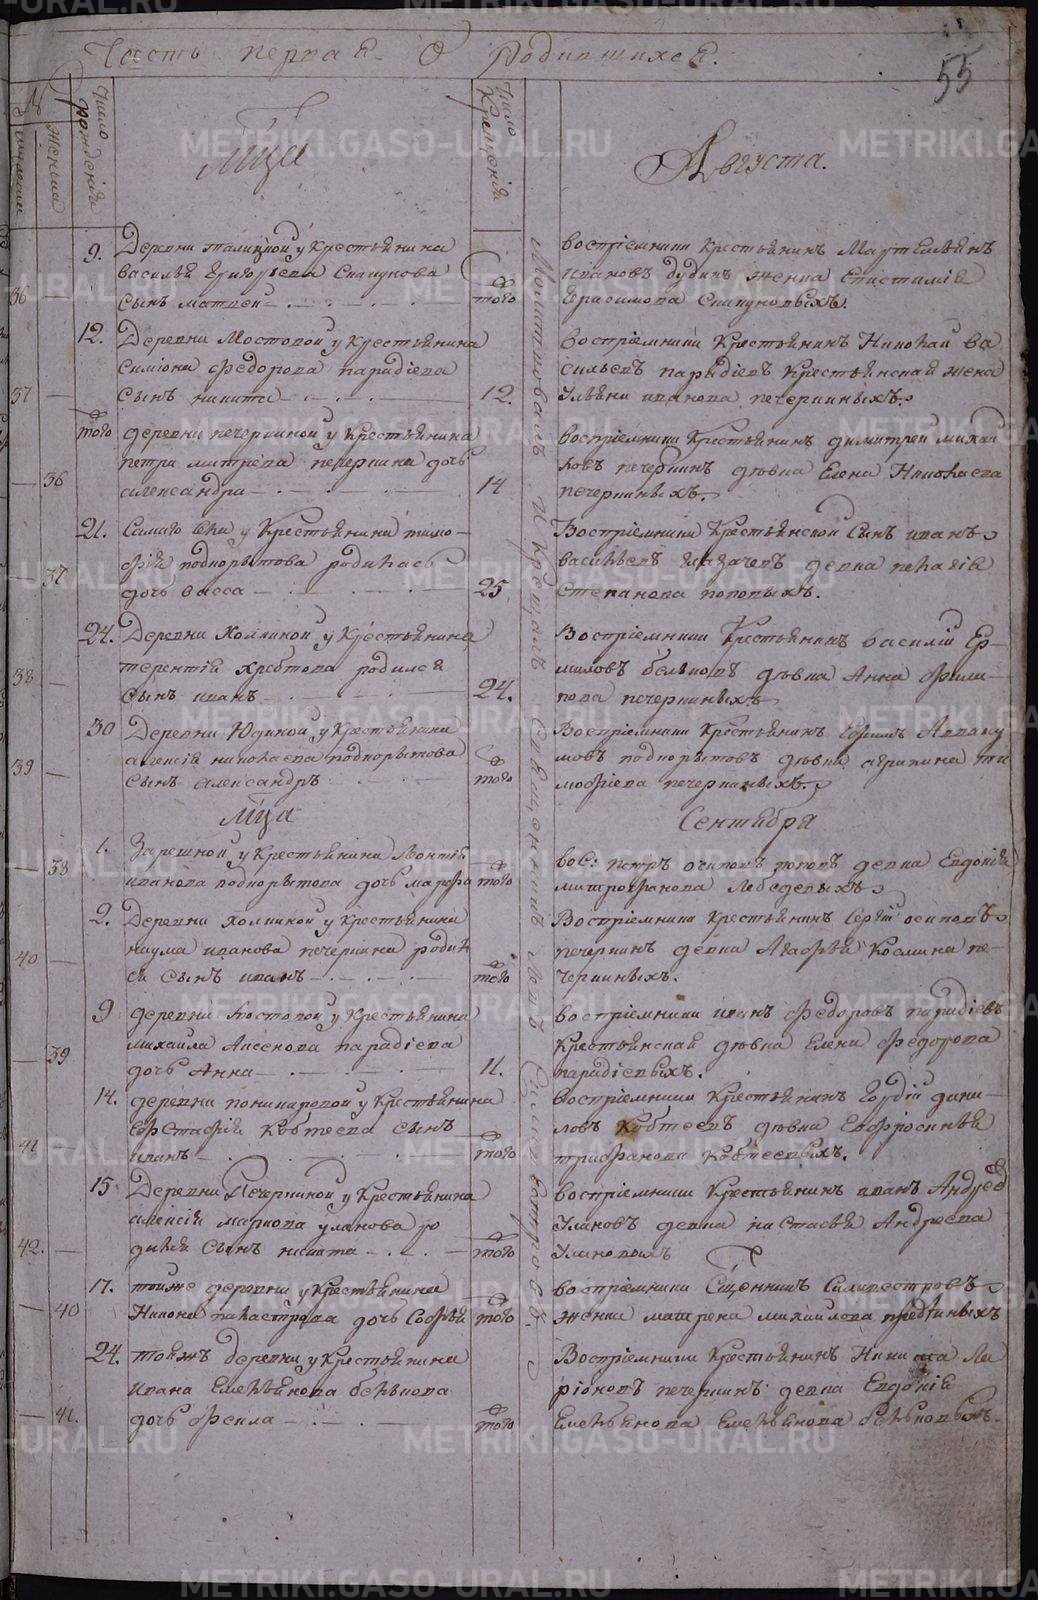 55
Часть первая. О родившихся.
№
мужеска
женска
число рождения
Мца
число крещения
Августа.
9. Деревни талицкой у крестьянина
василья Григорьева Спицунова
36 — сынъ матвеи — того
восприемники крестьянинъ
ивановъ дудинъ женка
Герасимова Спицуновыхъ.
12. Деревни Мостовой у крестьянина
Симиона Федорова парадиева
37 — сынъ никита — 12.
восприемники крестьянинъ Николаи ва
сильевъ парадиевъ крестьянская жена
Ульяни иванова печеркиныхъ.
того деревни печеркиной у крестьянина
петра митрева печеркина дочь
— 36 александра — 14
восприемники крестьянинъ димитреи михаи
ловъ печеркинъ девка Елена Николаева
печеркиныхъ.
21. Самаго села у крестьянина тимо-
фия подкорытова родилась
— 37 дочь васса — 25
Восприемники крестьянской сынъ иванъ
васильевъ девка пелагия
Степанова поповыхъ.
24. Деревни Холкиной у крестьянина
терентия хребтова родился
38 — сынъ иванъ — 24.
Восприемники крестьянинъ василии Ер-
миловъ бельковъ девка Анна Фили-
пова печеркиныхъ
30 Деревни Юдиной у крестьянина
алексия николаева подкорытова
39 — сынъ александръ — того
Восприемники крестьянинъ Ефимъ Авваку
мовъ подкорытовъ девка агрипина ти
мофиева печеркиныхъ.
Мца Сентября
1. Зарешной у крестьянина Леонтия
— 38 иванова подкорытова дочь марфа того
вос: петръ осиповъ поповъ девка Евдокия
митрофанова Лебедевыхъ
2. Деревни холкиной у крестьянина
наума иванова печеркина роди
40 — ся сынъ иванъ — того
Восприемники крестьянинъ Сергии осиповъ
печеркинъ девка Агафья Козмина пе-
черкиныхъ.
9 деревни Мостовой у крестьянина
михаила Аксенова парадиева
— 39 дочь Анна — 11.
восприемники иванъ Федоровъ парадиевъ
крестьянская девка Елена Федорова
парадиевыхъ.
14. деревни понамаревой у крестьянина
Евстафия Коктеева сынъ
41 — иванъ — того
восприемники крестьянинъ Гордии дани-
ловъ Коктеевъ девка Ефросинья
трифанова Коктеевыхъ.
15 Деревни Печеркиной у крестьянина
алексия маркова уланова ро
42. — дился сынъ никита — того
восприемники крестьянинъ иванъ Андреев
Улановъ девка настасья Андреева
Улановыхъ
17. тойже деревни у крестьянина
— 40 Никона дочь Софья того
восприемники Сщенникъ Силивестровъ
женка матрена михаилова
24. тойжъ деревни у крестьянина
ивана Емельянова белькова
— 41. дочь фекла — того
Восприемники крестьянинъ Никита Ла
рионовъ печеркинъ девка Евдокия
Емельянова Емельянова бельковыхъ.
Молитвовалъ и крещалъ священникъ